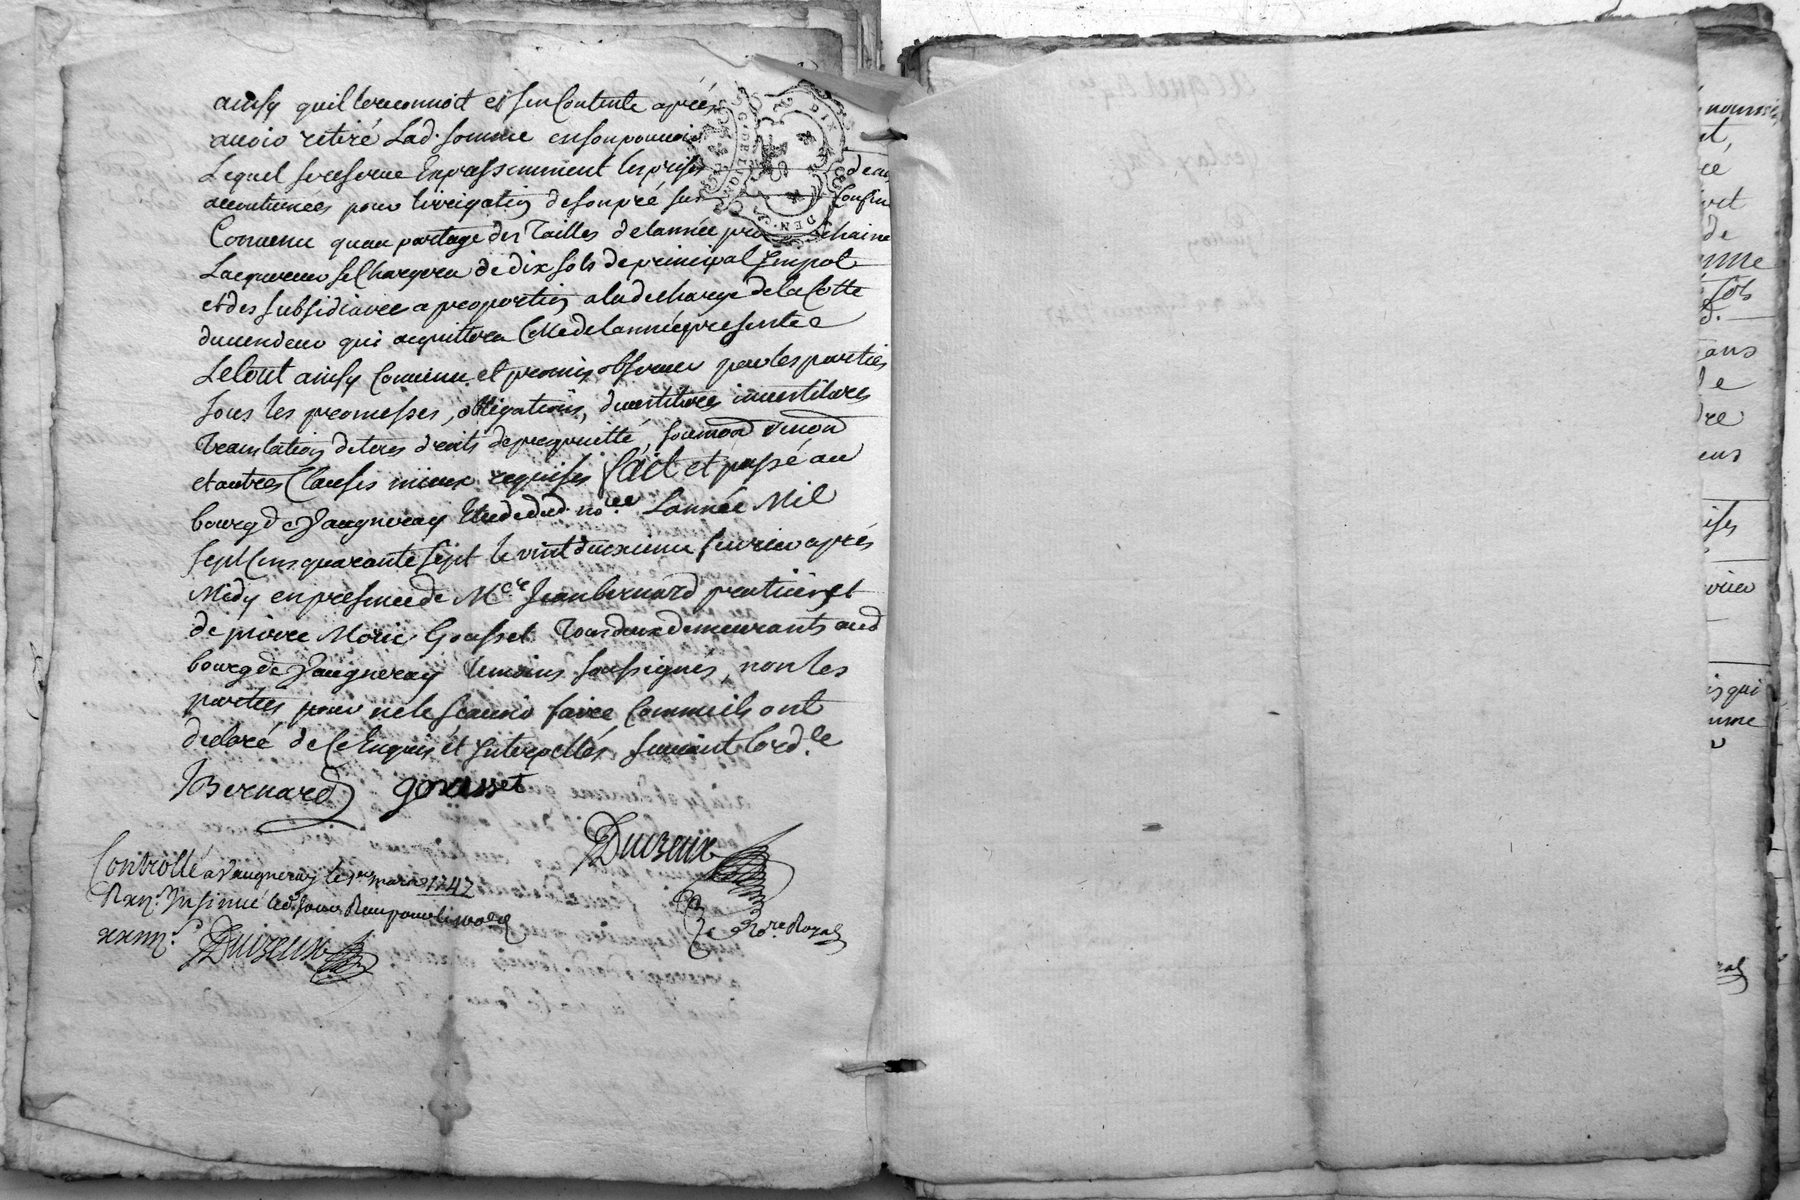 ainsy quil le reconnoit et sen Contente après
avoir retiré Lad. somme en son pouvoir
Lequel se reserve Expressemment les prises deau
accoutumées pour lirrigation de son pré sus Confiné
Convenu quau partage des Tailles de lannée prochaine
Lacquereur se Chargera de dix sols de principal Impot
et des subsidiaires a proportion a la decharge de la Cotte
du vendeur qui acquittera Celle de lannée presente
Le tout ainsy Convenu et promis observer par les parties
sous les promesses, obligations, devestitures investitures
Translation de tous droits de proprietté, soumon renon
et autres Clauses mieux requises fait et passé au
bourg de Vaugneray Etude dud. nore Lannée Mil
sept Cens quarante sept le vint deuxieme fevrier après
Midy en presence de Mre Jean bernard praticien et
de pierre Marie Gousset Tous deux demeurants aud
bourg de Vaugneray temoins soussignés, non les
parties pour ne le scavoir faire Comme ils ont
declaré de Ce Enquis et Interpellés suivant lord.ce
JBernard gousset
Duizeux
nore Royal
Controllé a Vaugneray le 1er mars 1747
Insinué led. jour Reçu pour le
Duizeux
G. DE LYON
DIX
DEN.
nourri
ré
de
sols
d.
ans
de
dre
isy
vrier
is qui
ume